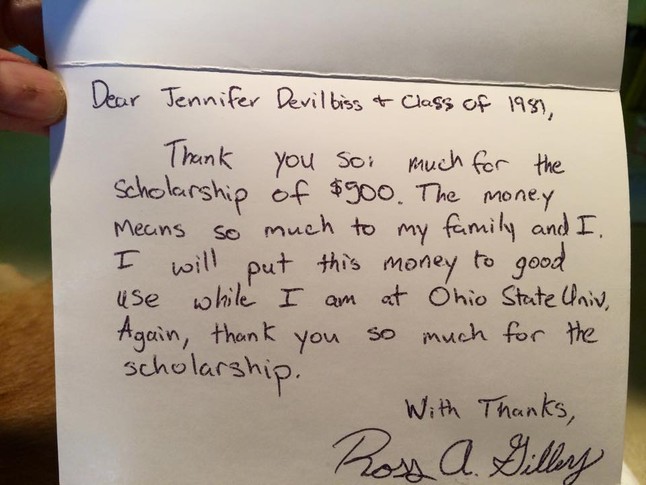 Dear Jennifer Devilbiss + Class of 1981,
Thank you so much for the
scholarship of $900. The money
means so much to my family and I.
I will put this money to good
use while I am at Ohio State Univ.
Again, thank you so much for the
scholarship.
With Thanks,
Ross A.